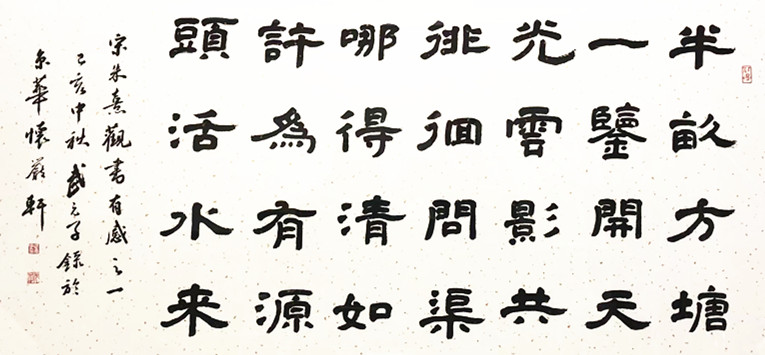 半畝方塘
一鑒開天
光雲影共
徘徊問渠
哪得清如
許爲有源
頭活水来
宋朱熹觀書有感之一
己亥中秋武元子錄於
京華懷嚴軒